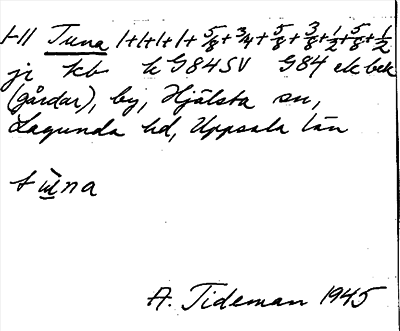 1-11 Tuna 1+1+1+1+5/8+3/4+5/8+3/8+1/2+5/8+1/2
jr kb k G84SV G84 ek bek
(gårdar), by, Hjälsta sn,
Lagunda hd, Uppsala län
A. Tideman 1945